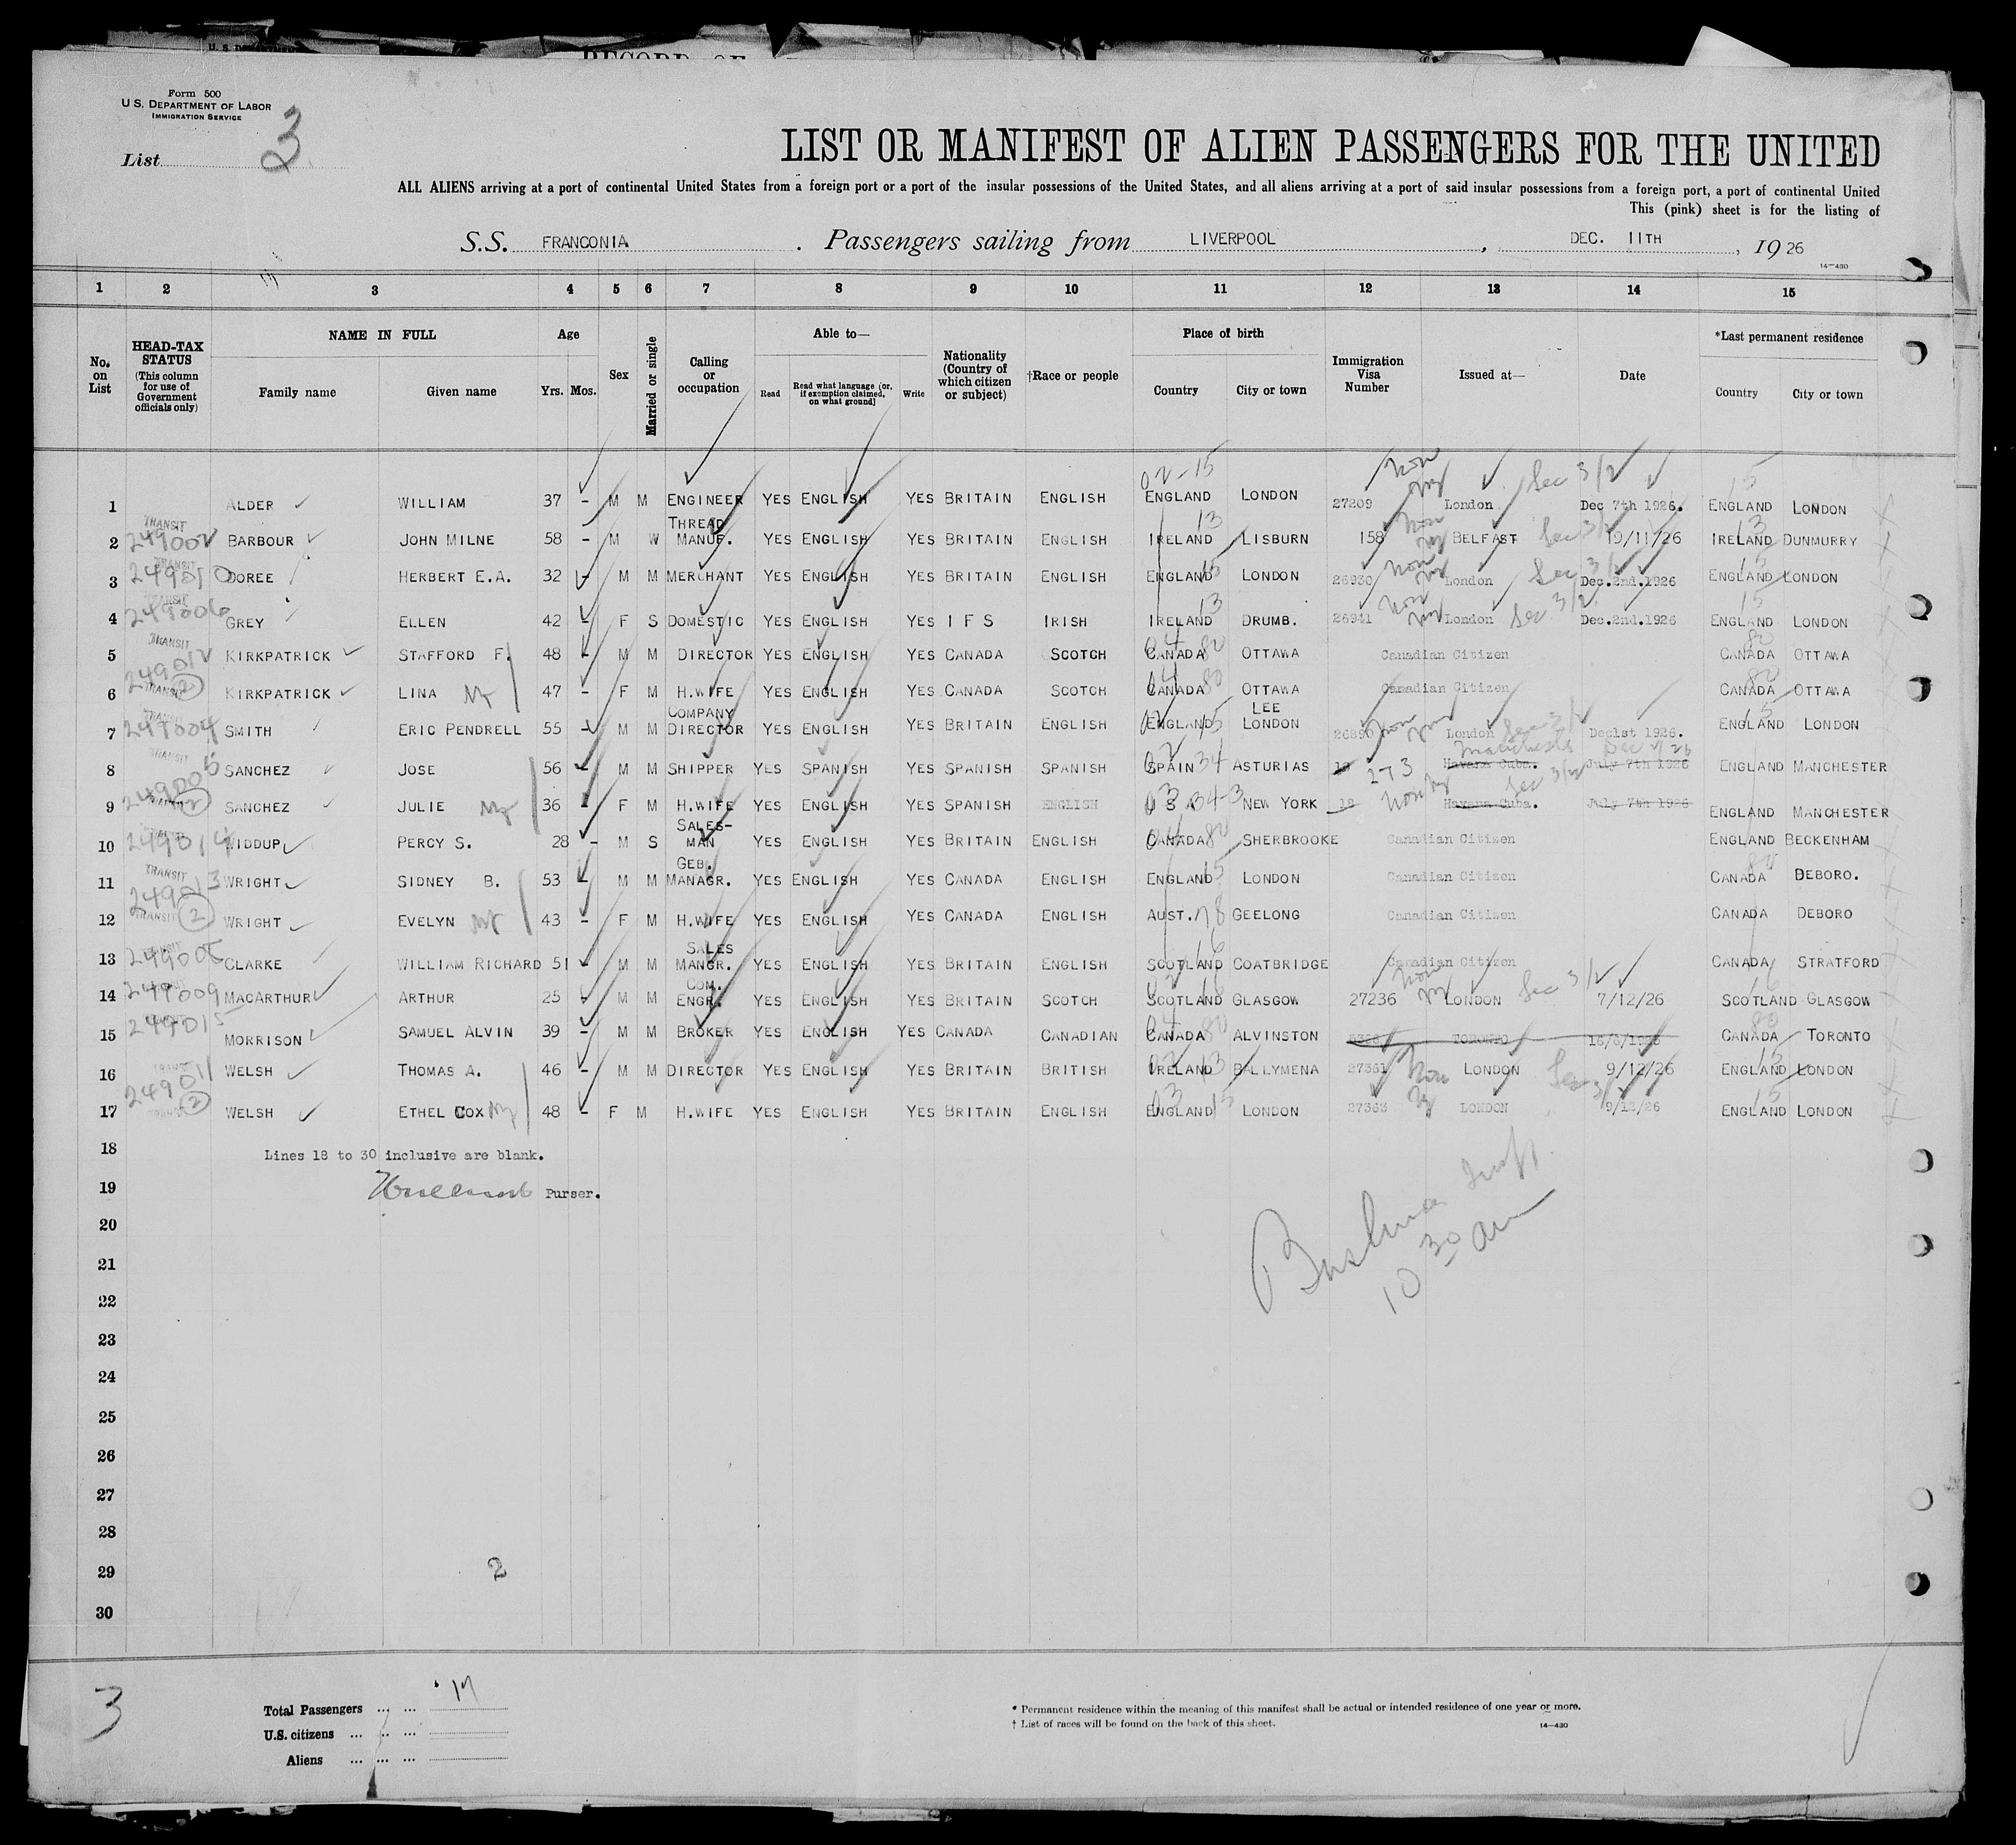 Form 500
U.S. DEPARTMENT OF LABOR
IMMIGRATION SERVICE
List 3
LIST OR MANIFEST OF ALIEN PASSENGERS FOR THE UNITED
ALL ALIENS arriving at a port of continental United States from a foreign port or a port of the insular possessions of the United States, and all aliens arriving at a port of said insular possessions from a foreign port, a port of continental United
This (pink) sheet is for the listing of
S.S. FRANCONIA. Passengers sailing from LIVERPOOL, DEC. 11TH, 19 26
14-430
1 2 3 4 5 6 7 8 9 10 11 12 13 14 15
No. on List
HEAD-TAX STATUS (This column for use of Government officials only)
NAME IN FULL Family name Given name
Age Yrs. Mos.
Sex
Married or single
Calling or occupation
Able to— Read Read what language (or, if exemption claimed, on what ground) Write
Nationality (Country of which citizen or subject)
†Race or people
Place of birth Country City or town
Immigration Visa Number
Issued at—
Date
*Last permanent residence Country City or town
1 ALDER WILLIAM 37 - M M ENGINEER YES ENGLISH YES BRITAIN ENGLISH ENGLAND LONDON 27209 London Sec 3/2 Dec 7th 1926. ENGLAND LONDON
2 TRANSIT 249002 BARBOUR JOHN MILNE 58 - M W THREAD MANUF. YES ENGLISH YES BRITAIN ENGLISH IRELAND LISBURN 158 BELFAST Sec 3/2 19/11/26 IRELAND DUNMURRY
3 TRANSIT 249010 DOREE HERBERT E.A. 32 - M M MERCHANT YES ENGLISH YES BRITAIN ENGLISH ENGLAND LONDON 26930 London Sec 3/2 Dec.2nd.1926 ENGLAND LONDON
4 TRANSIT 249006 GREY ELLEN 42 - F S DOMESTIC YES ENGLISH YES I F S IRISH IRELAND DRUMB. 26941 London Sec 3/2 Dec.2nd.1926 ENGLAND LONDON
5 TRANSIT 249012 KIRKPATRICK STAFFORD F. 48 - M M DIRECTOR YES ENGLISH YES CANADA SCOTCH CANADA OTTAWA Canadian Citizen CANADA OTTAWA
6 TRANSIT 2 KIRKPATRICK LINA 47 - F M H.WIFE YES ENGLISH YES CANADA SCOTCH CANADA OTTAWA Canadian Citizen CANADA OTTAWA
7 TRANSIT 249004 SMITH ERIC PENDRELL 55 - M M COMPANY DIRECTOR YES ENGLISH YES BRITAIN ENGLISH ENGLAND LEE LONDON 26890 London Sec 3/2 Dec1st 1926. ENGLAND LONDON
8 TRANSIT 249005 SANCHEZ JOSE 56 - M M SHIPPER YES SPANISH YES SPANISH SPANISH SPAIN ASTURIAS 273 Havana Cuba. Manchester July 7th 1926 ENGLAND MANCHESTER
9 2 SANCHEZ JULIE 36 - F M H.WIFE YES ENGLISH YES SPANISH ENGLISH U S A NEW YORK 12 Havana Cuba. Sec 3/2 July 7th 1926 ENGLAND MANCHESTER
10 249014 WIDDUP PERCY S. 28 - M S SALES-MAN YES ENGLISH YES BRITAIN ENGLISH CANADA SHERBROOKE Canadian Citizen ENGLAND BECKENHAM
11 TRANSIT 249013 WRIGHT SIDNEY B. 53 - M M GEB. MANAGR. YES ENGLISH YES CANADA ENGLISH ENGLAND LONDON Canadian Citizen CANADA DEBORO.
12 TRANSIT 2 WRIGHT EVELYN 43 - F M H.WIFE YES ENGLISH YES CANADA ENGLISH AUST. GEELONG Canadian Citizen CANADA DEBORO
13 CLARKE WILLIAM RICHARD 51 - M M SALES MANGR. YES ENGLISH YES BRITAIN ENGLISH SCOTLAND COATBRIDGE Canadian Citizen CANADA STRATFORD
14 249009 MACARTHUR ARTHUR 25 - M M COM. ENGR. YES ENGLISH YES BRITAIN SCOTCH SCOTLAND GLASGOW 27236 LONDON Sec 3/2 7/12/26 SCOTLAND GLASGOW
15 249015 MORRISON SAMUEL ALVIN 39 - M M BROKER YES ENGLISH YES CANADA CANADIAN CANADA ALVINSTON TORONTO CANADA TORONTO
16 TRANSIT 249011 WELSH THOMAS A. 46 - M M DIRECTOR YES ENGLISH YES BRITAIN BRITISH IRELAND BALLYMENA 27361 LONDON 9/12/26 ENGLAND LONDON
17 2 WELSH ETHEL COX 48 - F M H.WIFE YES ENGLISH YES BRITAIN ENGLISH ENGLAND LONDON 27363 LONDON 9/12/26 ENGLAND LONDON
18 Lines 18 to 30 inclusive are blank.
19 Purser.
20
21
22
23
24
25
26
27
28
29 2
30
10 30 am
3
Total Passengers ... ... 17
U.S. citizens ... ... ...
Aliens ... ... ...
* Permanent residence within the meaning of this manifest shall be actual or intended residence of one year or more.
† List of races will be found on the back of this sheet.
14-430